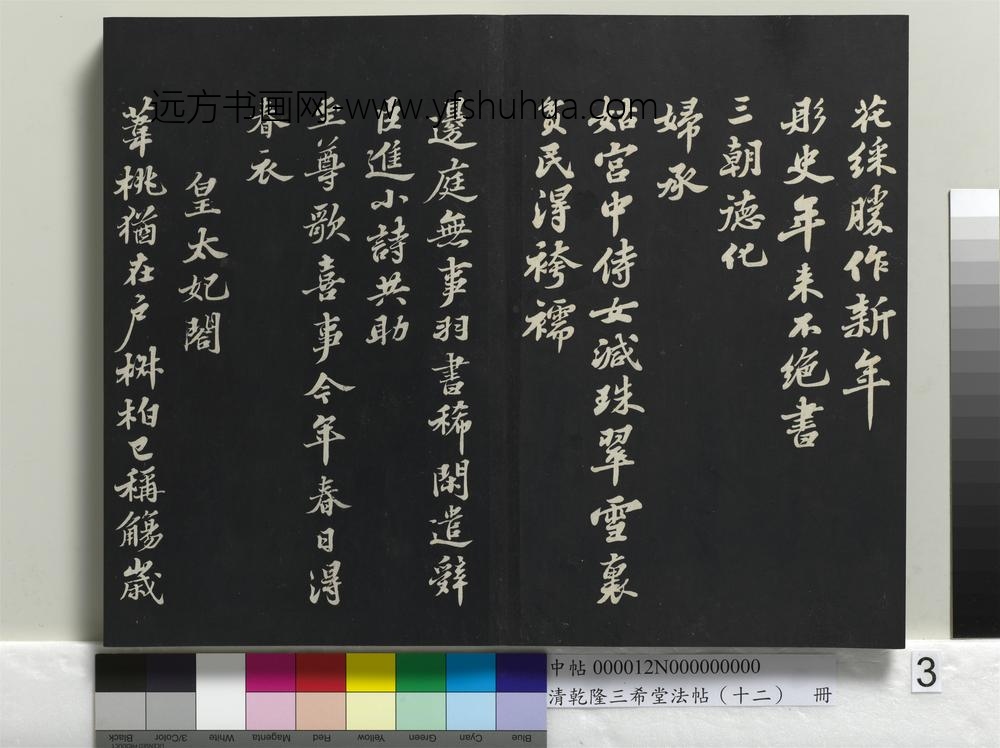 花綵勝作新年
彤史年来不绝書
三朝德化
婦承
姑宮中侍女減珠翠雪裏
貧民得袴襦
邊庭無事羽書稀閑遣辞
臣進小詩共助
至尊歌喜事今年春日得
春衣
皇太妃閤
葦桃猶在户椒柏已稱觴歲
远方书画网 www.yfshuhua.com
中帖 000012N000000000
清乾隆三希堂法帖（十二） 冊
3
Black
3/Color
White
Magenta
Red
Yellow
Green
Cyan
Blue